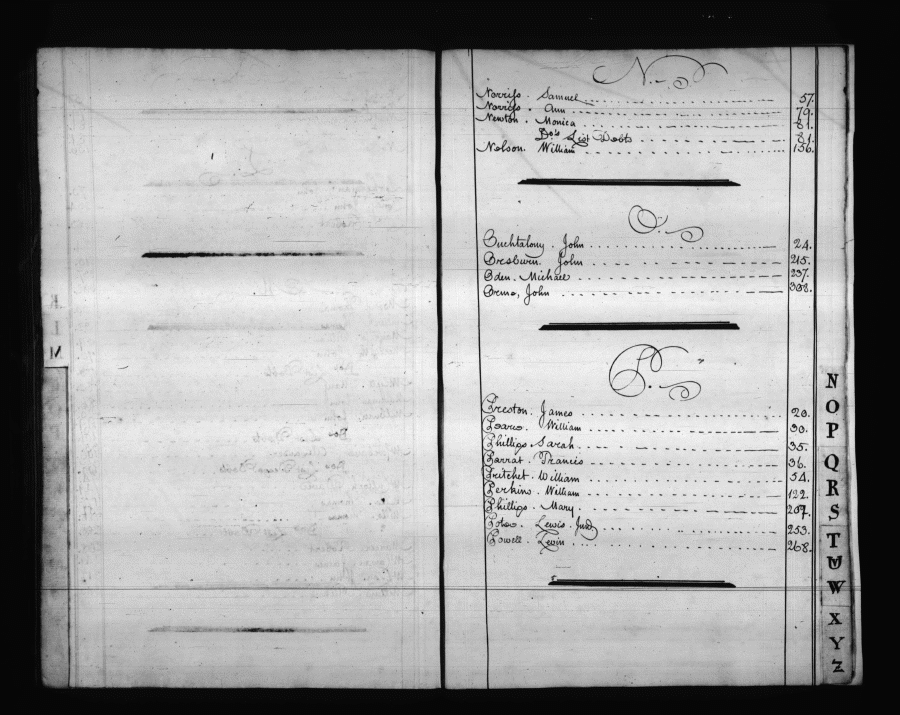 N.
Norriss. Samuel 57.
Norriss. Ann 79.
Newton. Monica 81.
Do's List Debts 81.
Nelson. William 156.
O.
Ouchtalony. John 24.
Oresburn. John 215.
Oden. Michael 237.
Orme, John 308.
P.
Preston. James 20.
Pearce. William 30.
Phillips Sarah 35.
Parrat. Francis 36.
Pritchet. William 54.
Perkins. William 122.
Phillips. Mary 207.
Lewis. Junr 253.
Powell. Levin 268.
M
N
O
P
Q
R
S
T
U
W
X
Y
Z